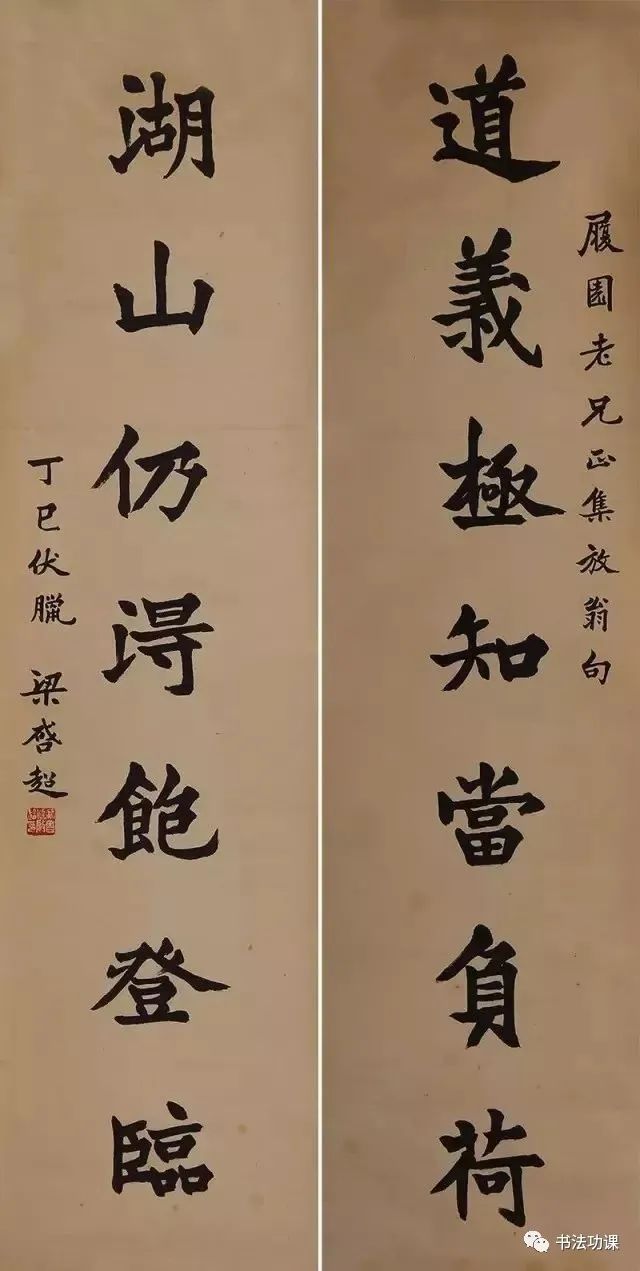 履園老兄正集放翁句
道義極知當負荷
湖山仍得飽登臨
丁巳伏臘 梁啓超
书法功课